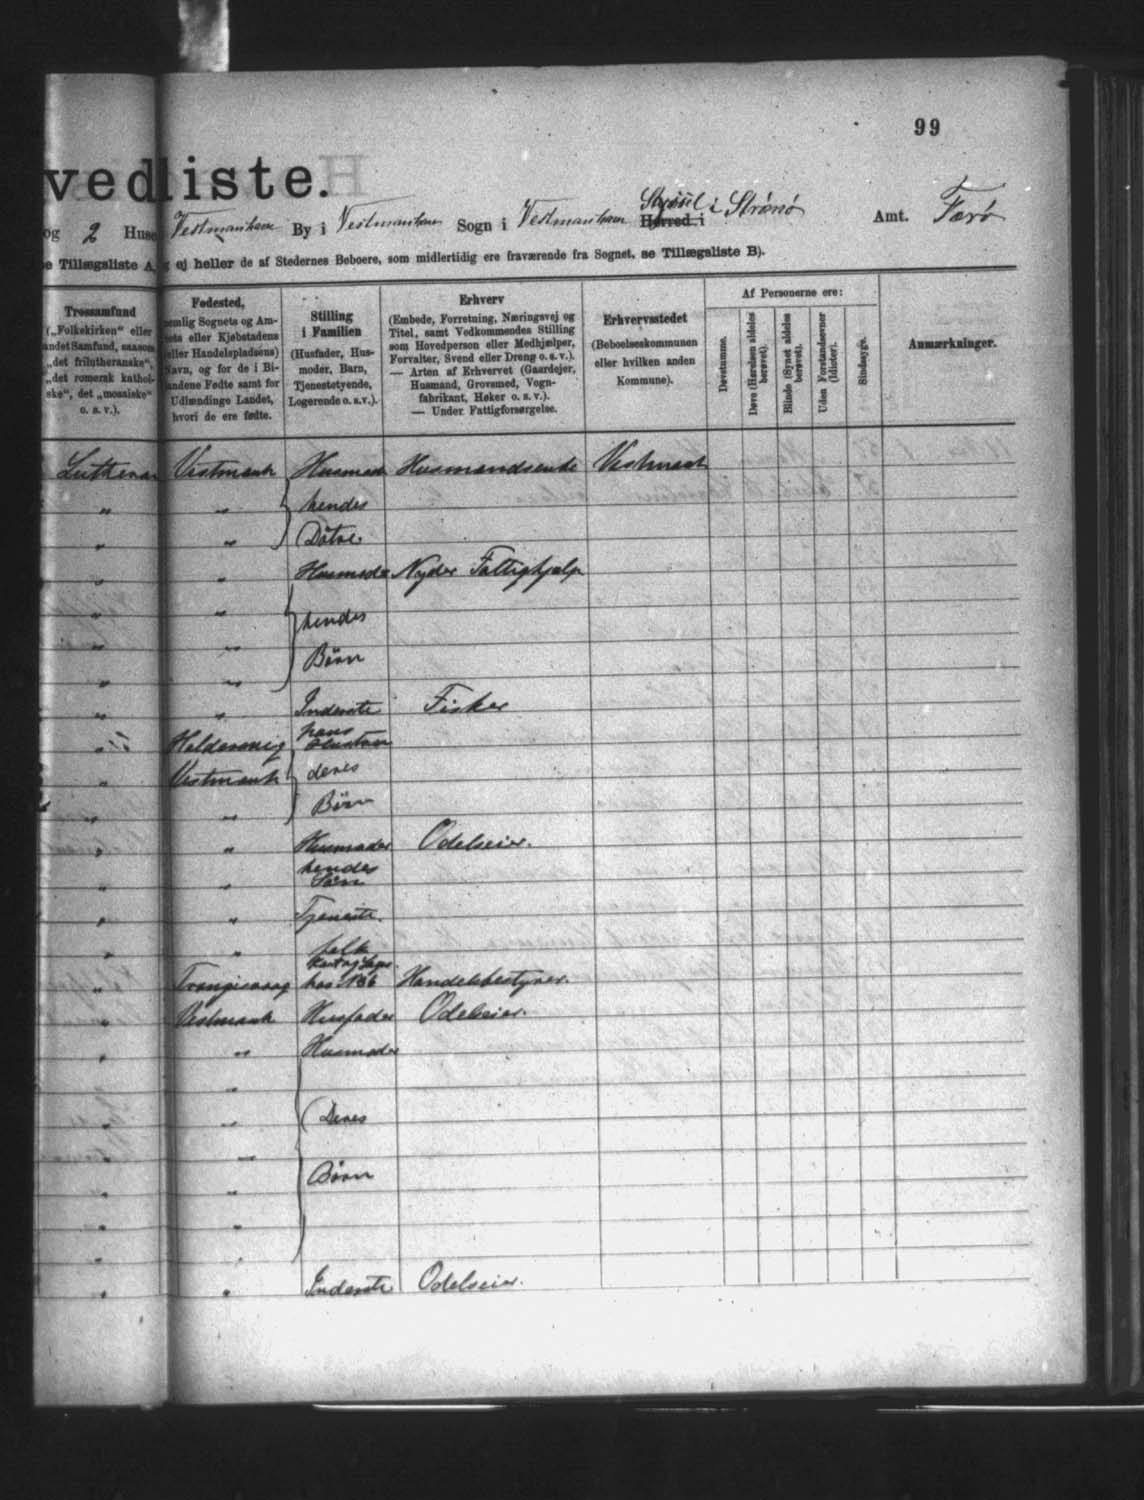 99
vedliste.
og 2 Huse Vestmanhavn By i Vestmanhavn Sogn i Vestmanhavn Herred i Syssel i Strömö Amt. Færö
e Tillægsliste A, og ej heller de af Stedernes Beboere, som midlertidig ere fraværende fra Sognet, se Tillægsliste B).
Trossamfund
(„Folkekirken“ eller
andet Samfund, saasom
„det frilutheranske“,
„det romersk kathol-
ske“, det „mosaiske“
o. s. v.).
Fødested,
nemlig Sognets og Am-
tets eller Kjøbstadens
(eller Handelspladsens)
Navn, og for de i Bi-
landene Fødte samt for
Udlændinge Landet,
hvori de ere fødte.
Stilling
i Familien
(Husfader, Hus-
moder, Barn,
Tjenestetyende,
Logerende o. s. v.).
Erhverv
(Embede, Forretning, Næringsvej og
Titel, samt Vedkommendes Stilling
som Hovedperson eller Medhjælper,
Forvalter, Svend eller Dreng o. s. v.).
— Arten af Erhvervet (Gaardejer,
Husmand, Grovsmed, Vogn-
fabrikant, Høker o. s. v.).
— Under Fattigforsørgelse.
Erhvervsstedet
(Beboelseskommunen
eller hvilken anden
Kommune).
Af Personerne ere:
Døvstumme.
Døve (Hørelsen aldeles
berøvet).
Blinde (Synet aldeles
berøvet).
Uden Forstandsevner
(Idioter).
Sindssyge.
Anmærkninger.
Luthersk Vestmanh Husmod Husmandsenke Vestmanh
" " hendes
" " Døtre
" " Husmode Nyder Fattighjælp
" " hendes
" " Børn
" "
" " Inderste Fisker
" Haldersvig hans Hustru
" Vestmanh deres
" " Børn
" " Husmoder Odelseier.
" " hendes Søn
" " Tjeneste.
" folk
" Trangisvaag Handelsbestyrer.
" Vestmanh Husfader Odelseier.
" " Husmoder
"
" " Deres
"
" " Børn
" "
" "
" " Inderste Odelseier.